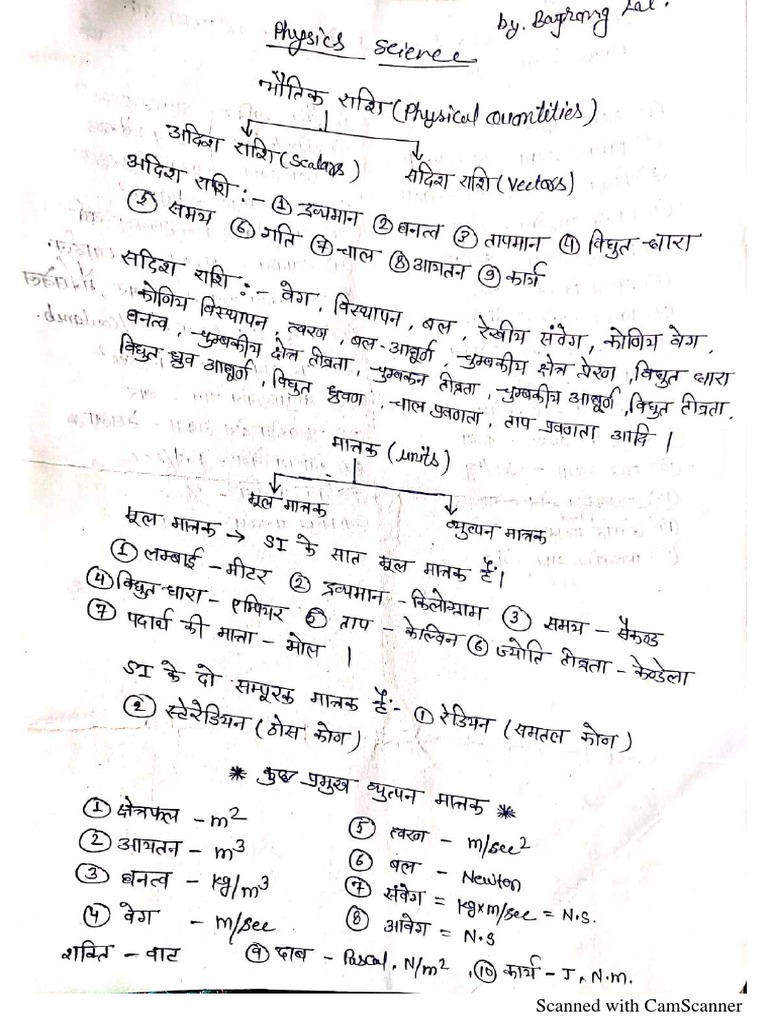 by. Bajrang Lal.
Physics Science
भौतिक राशि (Physical Quantities)
अदिश राशि (Scalars)
सदिश राशि (Vectors)
अदिश राशि :- ① द्रव्यमान ② घनत्व ③ तापमान ④ विद्युत-धारा
⑤ समय ⑥ गति ⑦ चाल ⑧ आयतन ⑨ कार्य
सदिश राशि :- वेग, विस्थापन, बल, रेखीय संवेग, कोणिय वेग,
कोणिय विस्थापन, त्वरण, बल-आघूर्ण, चुम्बकीय क्षेत्र प्रेरण, विद्युत धारा
घनत्व, चुम्बकीय क्षेत्र तीव्रता, चुम्बकन तीव्रता, चुम्बकीय आघूर्ण, विद्युत तीव्रता,
विद्युत ध्रुव आघूर्ण, विद्युत ध्रुवण, चाल प्रवणता, ताप प्रवणता आदि।
मात्रक (units)
मूल मात्रक
व्युत्पन मात्रक
मूल मात्रक → SI के सात मूल मात्रक हैं।
① लम्बाई - मीटर ② द्रव्यमान - किलोग्राम ③ समय - सैकण्ड
④ विद्युत-धारा - एम्पियर ⑤ ताप - केल्विन ⑥ ज्योति तीव्रता - केण्डेला
⑦ पदार्थ की मात्रा - मोल।
SI के दो सम्पूरक मात्रक हैं:- ① रेडियन (समतल कोण)
② स्टेरेडियन (ठोस कोण)
* कुछ प्रमुख व्युत्पन मात्रक *
① क्षेत्रफल - m²
② आयतन - m³
③ घनत्व - kg/m³
④ वेग - m/sec
⑤ त्वरण - m/sec²
⑥ बल - Newton
⑦ संवेग = kg×m/sec = N.S.
⑧ आवेग = N.S
शक्ति - वाट ⑨ दाब - Pascal, N/m², ⑩ कार्य - J, N.m.
Scanned with CamScanner